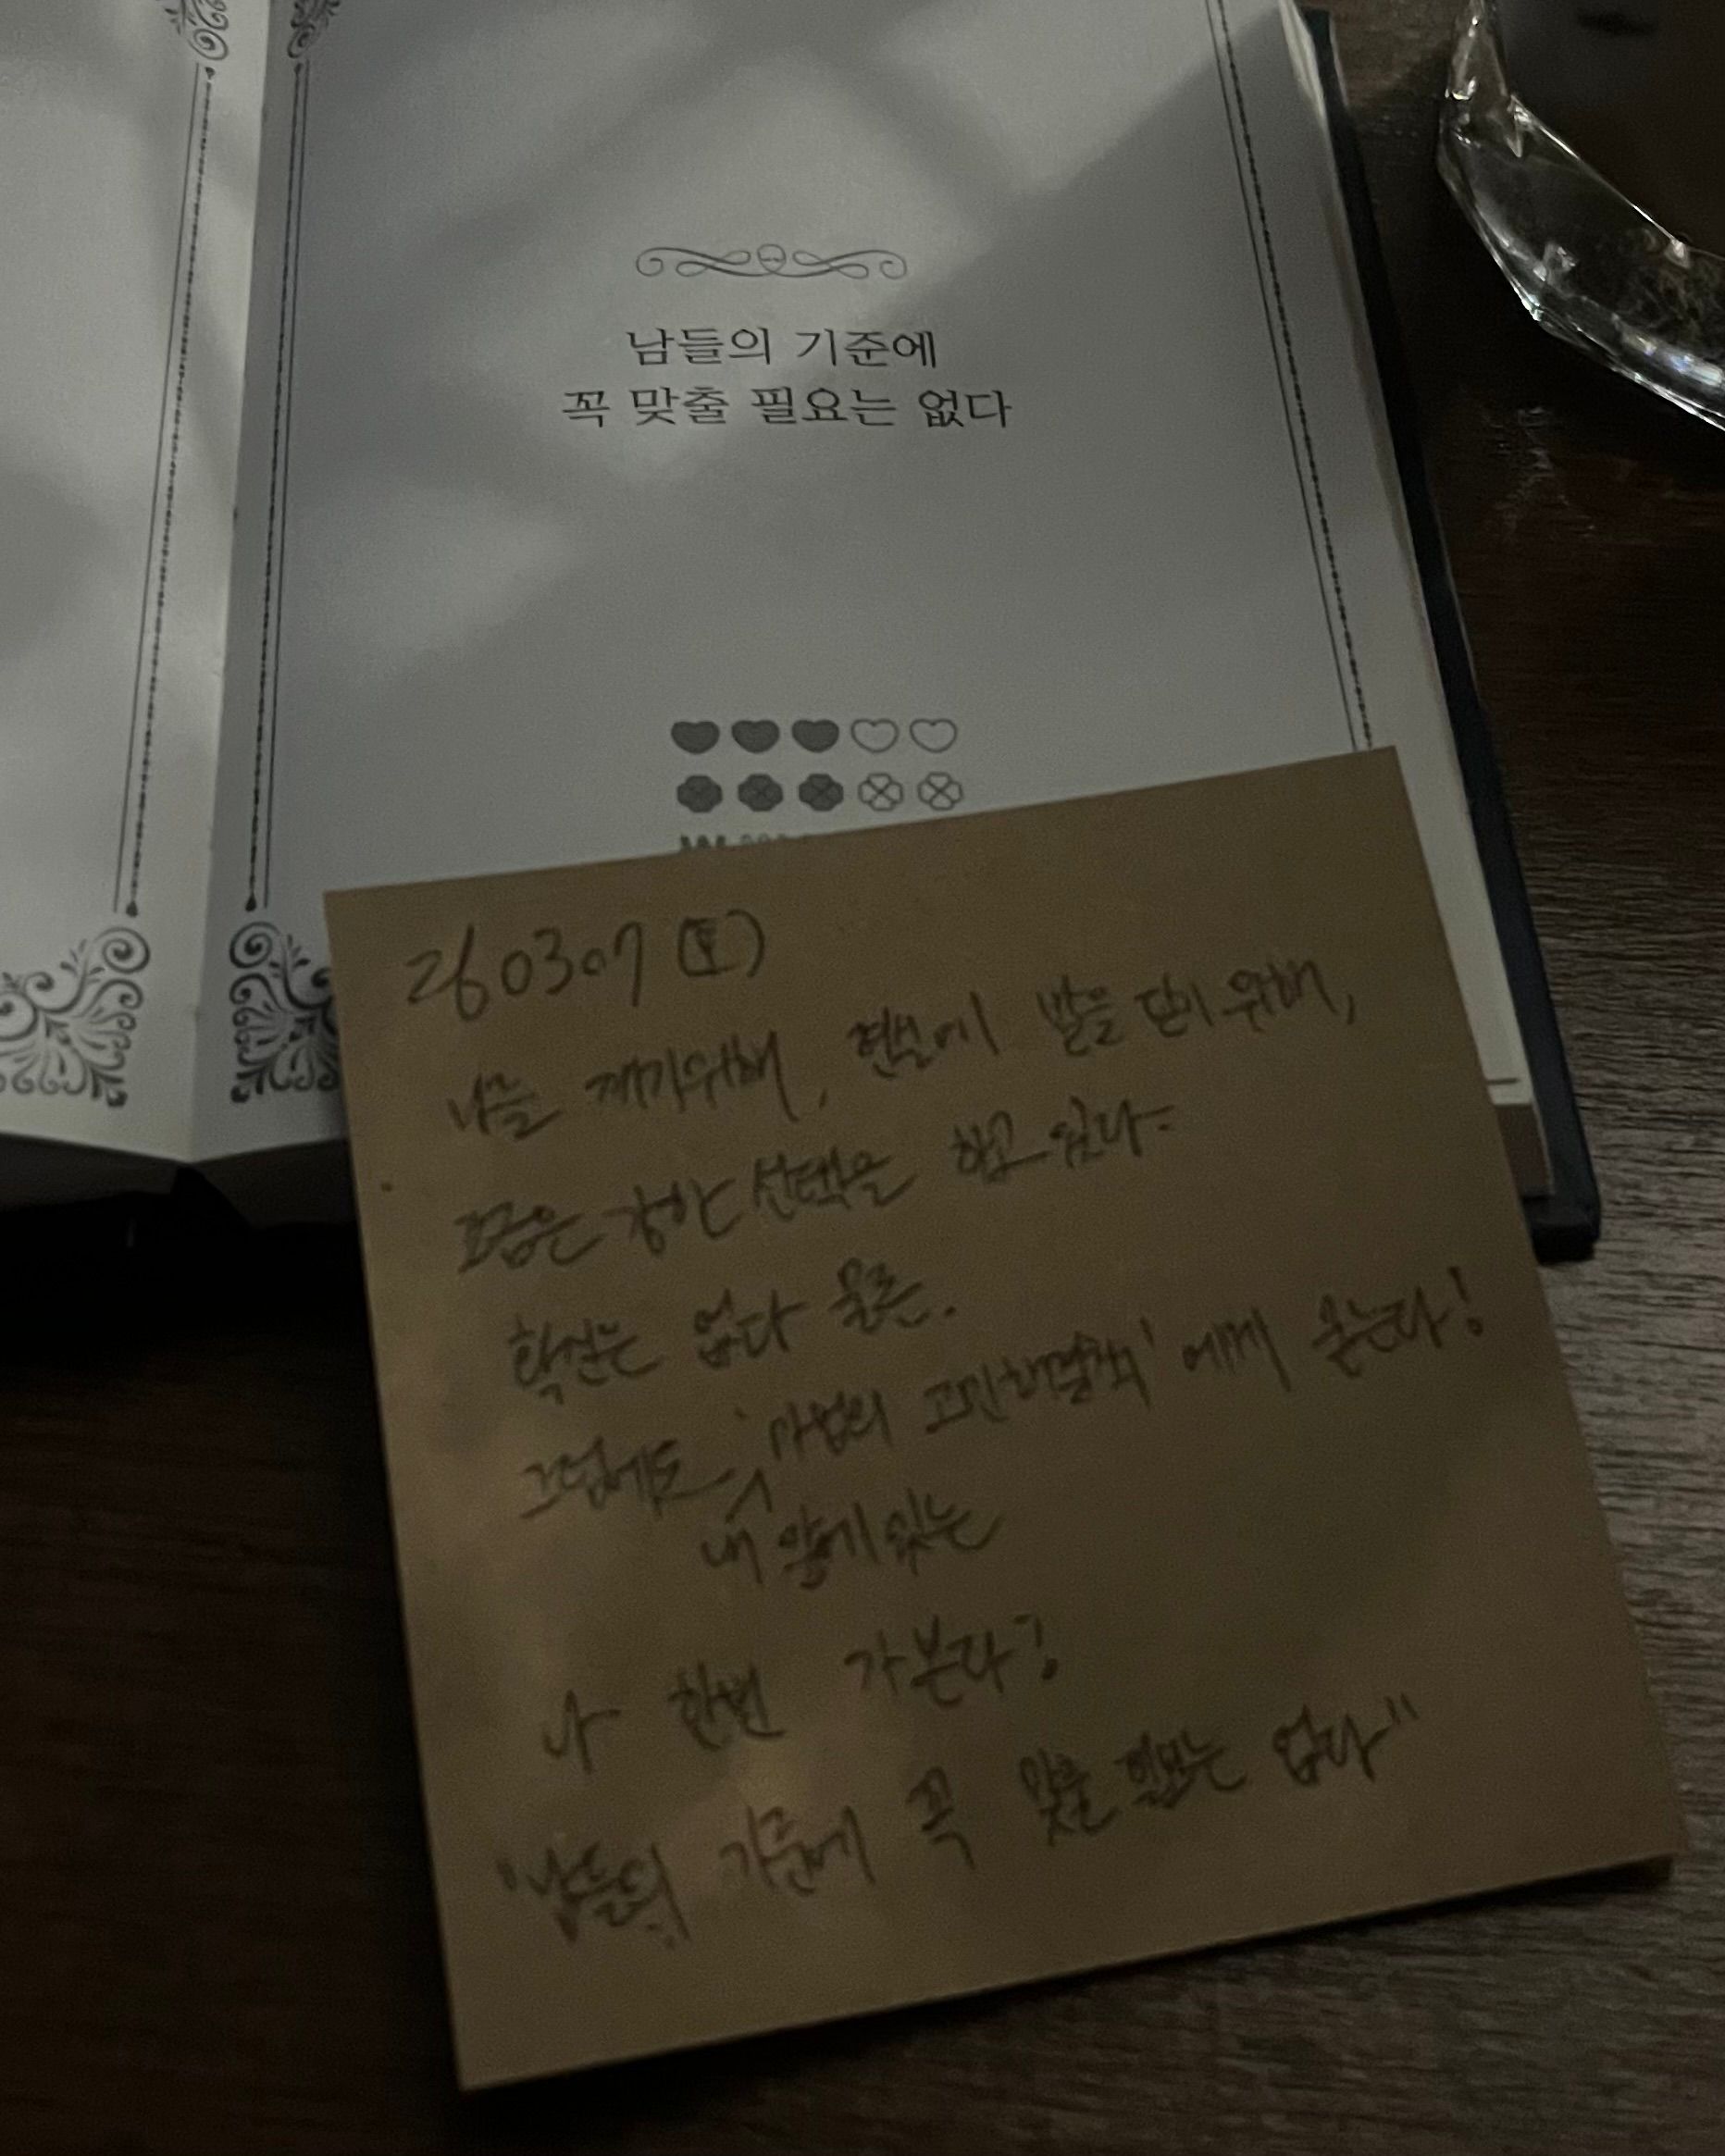 남들의 기준에
꼭 맞출 필요는 없다
260307 (토)
나를 깨기위해, 현실에 발을 딛기 위해,
조금은 강한 선택을 하고 있다-
확신은 없다 물론.
그럼에도 '마법의 고민해결책' 에게 묻는다!
내 앞에 있는
나 한번 가본다?
"남들의 기준에 꼭 맞출 필요는 없다"